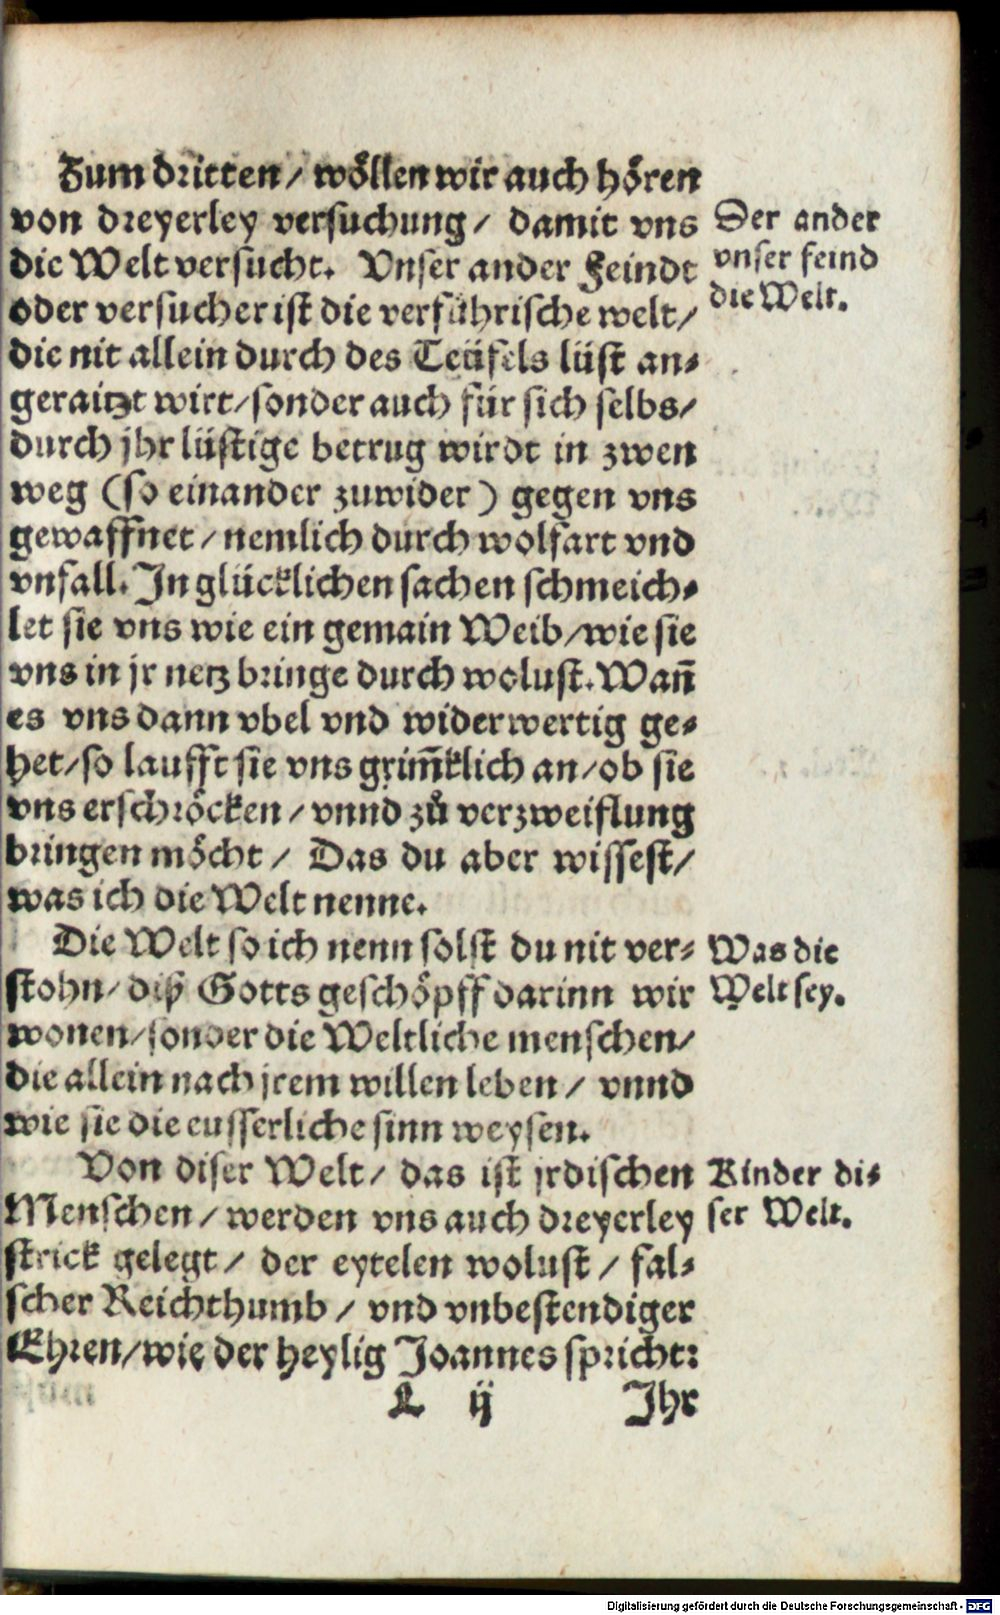 Zum dritten / wöllen wir auch hören
von dreyerley versuchung / damit vns
die Welt versucht. Vnser ander Feindt
oder versucher ist die verführische welt /
die nit allein durch des Teüfels lüst an⸗
geraitzt wirt / sonder auch für sich selbs /
durch jhr lüstige betrug wirdt in zwen
weg (so einander zuwider) gegen vns
gewaffnet / nemlich durch wolfart vnd
vnfall. In glücklichen sachen schmeich⸗
let sie vns wie ein gemain Weib / wie sie
vns in jr netz bringe durch wolust. Wañ
es vns dann vbel vnd widerwertig ge⸗
het / so laufft sie vns grim̃klich an / ob sie
vns erschröcken / vnnd zů verzweiflung
bringen möcht / Das du aber wissest /
was ich die Welt nenne.
Die Welt so ich nenn solst du nit ver⸗
stohn / diß Gotts geschöpff darinn wir
wonen / sonder die Weltliche menschen /
die allein nach jrem willen leben / vnnd
wie sie die eusserliche sinn weysen.
Von diser Welt / das ist jrdischen
Menschen / werden vns auch dreyerley
strick gelegt / der eytelen wolust / fal⸗
scher Reichthumb / vnd vnbestendiger
Ehren / wie der heylig Joannes spricht:
L ij Ihr
Der ander
vnser feind
die Welt.
Was die
Welt sey.
Kinder di⸗
ser Welt.
Digitalisierung gefördert durch die Deutsche Forschungsgemeinschaft - DFG